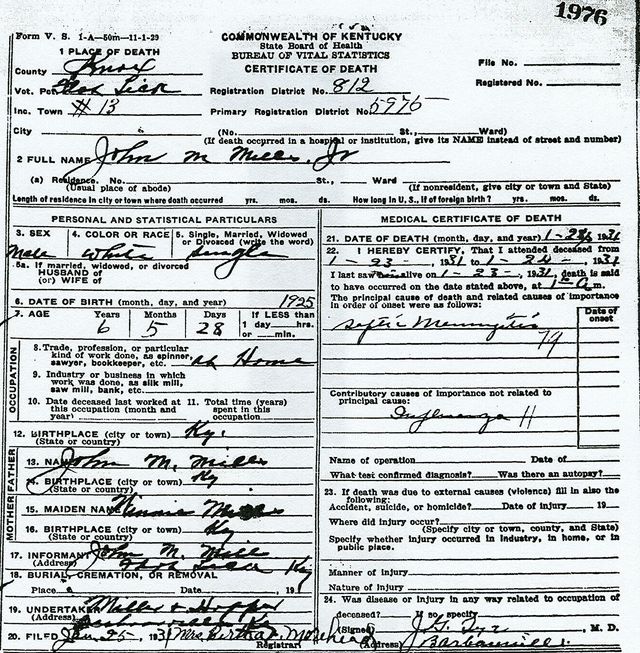 1976
Form V. S. 1-A—50m—11-1-29
COMMONWEALTH OF KENTUCKY
State Board of Health
BUREAU OF VITAL STATISTICS
CERTIFICATE OF DEATH
1 PLACE OF DEATH
County Knox
File No.
Vot. Pct. Flat Lick
Registration District No. 812
Registered No.
Inc. Town #13
Primary Registration District No. 5976
City (No. St., Ward)
(If death occurred in a hospital or institution, give its NAME instead of street and number)
2 FULL NAME John M Mills, Jr
(a) Residence. No. St., Ward
(Usual place of abode) (If nonresident, give city or town and State)
Length of residence in city or town where death occurred yrs. mos. ds. How long in U. S., if of foreign birth? yrs. mos. ds.
PERSONAL AND STATISTICAL PARTICULARS
3. SEX Male
4. COLOR OR RACE White
5. Single, Married, Widowed or Divorced (write the word) Single
5a. If married, widowed, or divorced
HUSBAND of
(or) WIFE of
6. DATE OF BIRTH (month, day, and year) 1925
7. AGE Years Months Days If LESS than
6 5 28 1 day hrs.
or min.
OCCUPATION
8. Trade, profession, or particular
kind of work done, as spinner,
sawyer, bookkeeper, etc. at Home
9. Industry or business in which
work was done, as silk mill,
saw mill, bank, etc.
10. Date deceased last worked at this occupation (month and year)
11. Total time (years) spent in this occupation
12. BIRTHPLACE (city or town) Ky.
(State or country)
FATHER
13. NAME John M. Mills
14. BIRTHPLACE (city or town) Ky
(State or country)
MOTHER
15. MAIDEN NAME Minnie Mills
16. BIRTHPLACE (city or town) Ky
(State or country)
17. INFORMANT John M. Mills
(Address) Flat Lick Ky
18. BURIAL, CREMATION, OR REMOVAL
Place Date , 19
19. UNDERTAKER Miller & Hopper
(Address) Barbourville Ky
20. FILED Jan 25, 1931 Mrs. Bertha Morehead
Registrar
MEDICAL CERTIFICATE OF DEATH
21. DATE OF DEATH (month, day, and year) 1-24, 1931
22. I HEREBY CERTIFY, That I attended deceased from
1-23-, 1931 to 1-24-, 1931
I last saw alive on 1-23-, 1931, death is said
to have occurred on the date stated above, at m.
The principal cause of death and related causes of importance
in order of onset were as follows:
Date of onset
Septic Meningitis
79
Contributory causes of importance not related to
principal cause:
Influenza 11
Name of operation Date of
What test confirmed diagnosis? Was there an autopsy?
23. If death was due to external causes (violence) fill in also the
following:
Accident, suicide, or homicide? Date of injury 19
Where did injury occur?
(Specify city or town, county, and State)
Specify whether injury occurred in industry, in home, or in
public place.
Manner of injury
Nature of injury
24. Was disease or injury in any way related to occupation of
deceased? If so, specify
(Signed) J. G. Tye, M. D.
(Address) Barbourville.